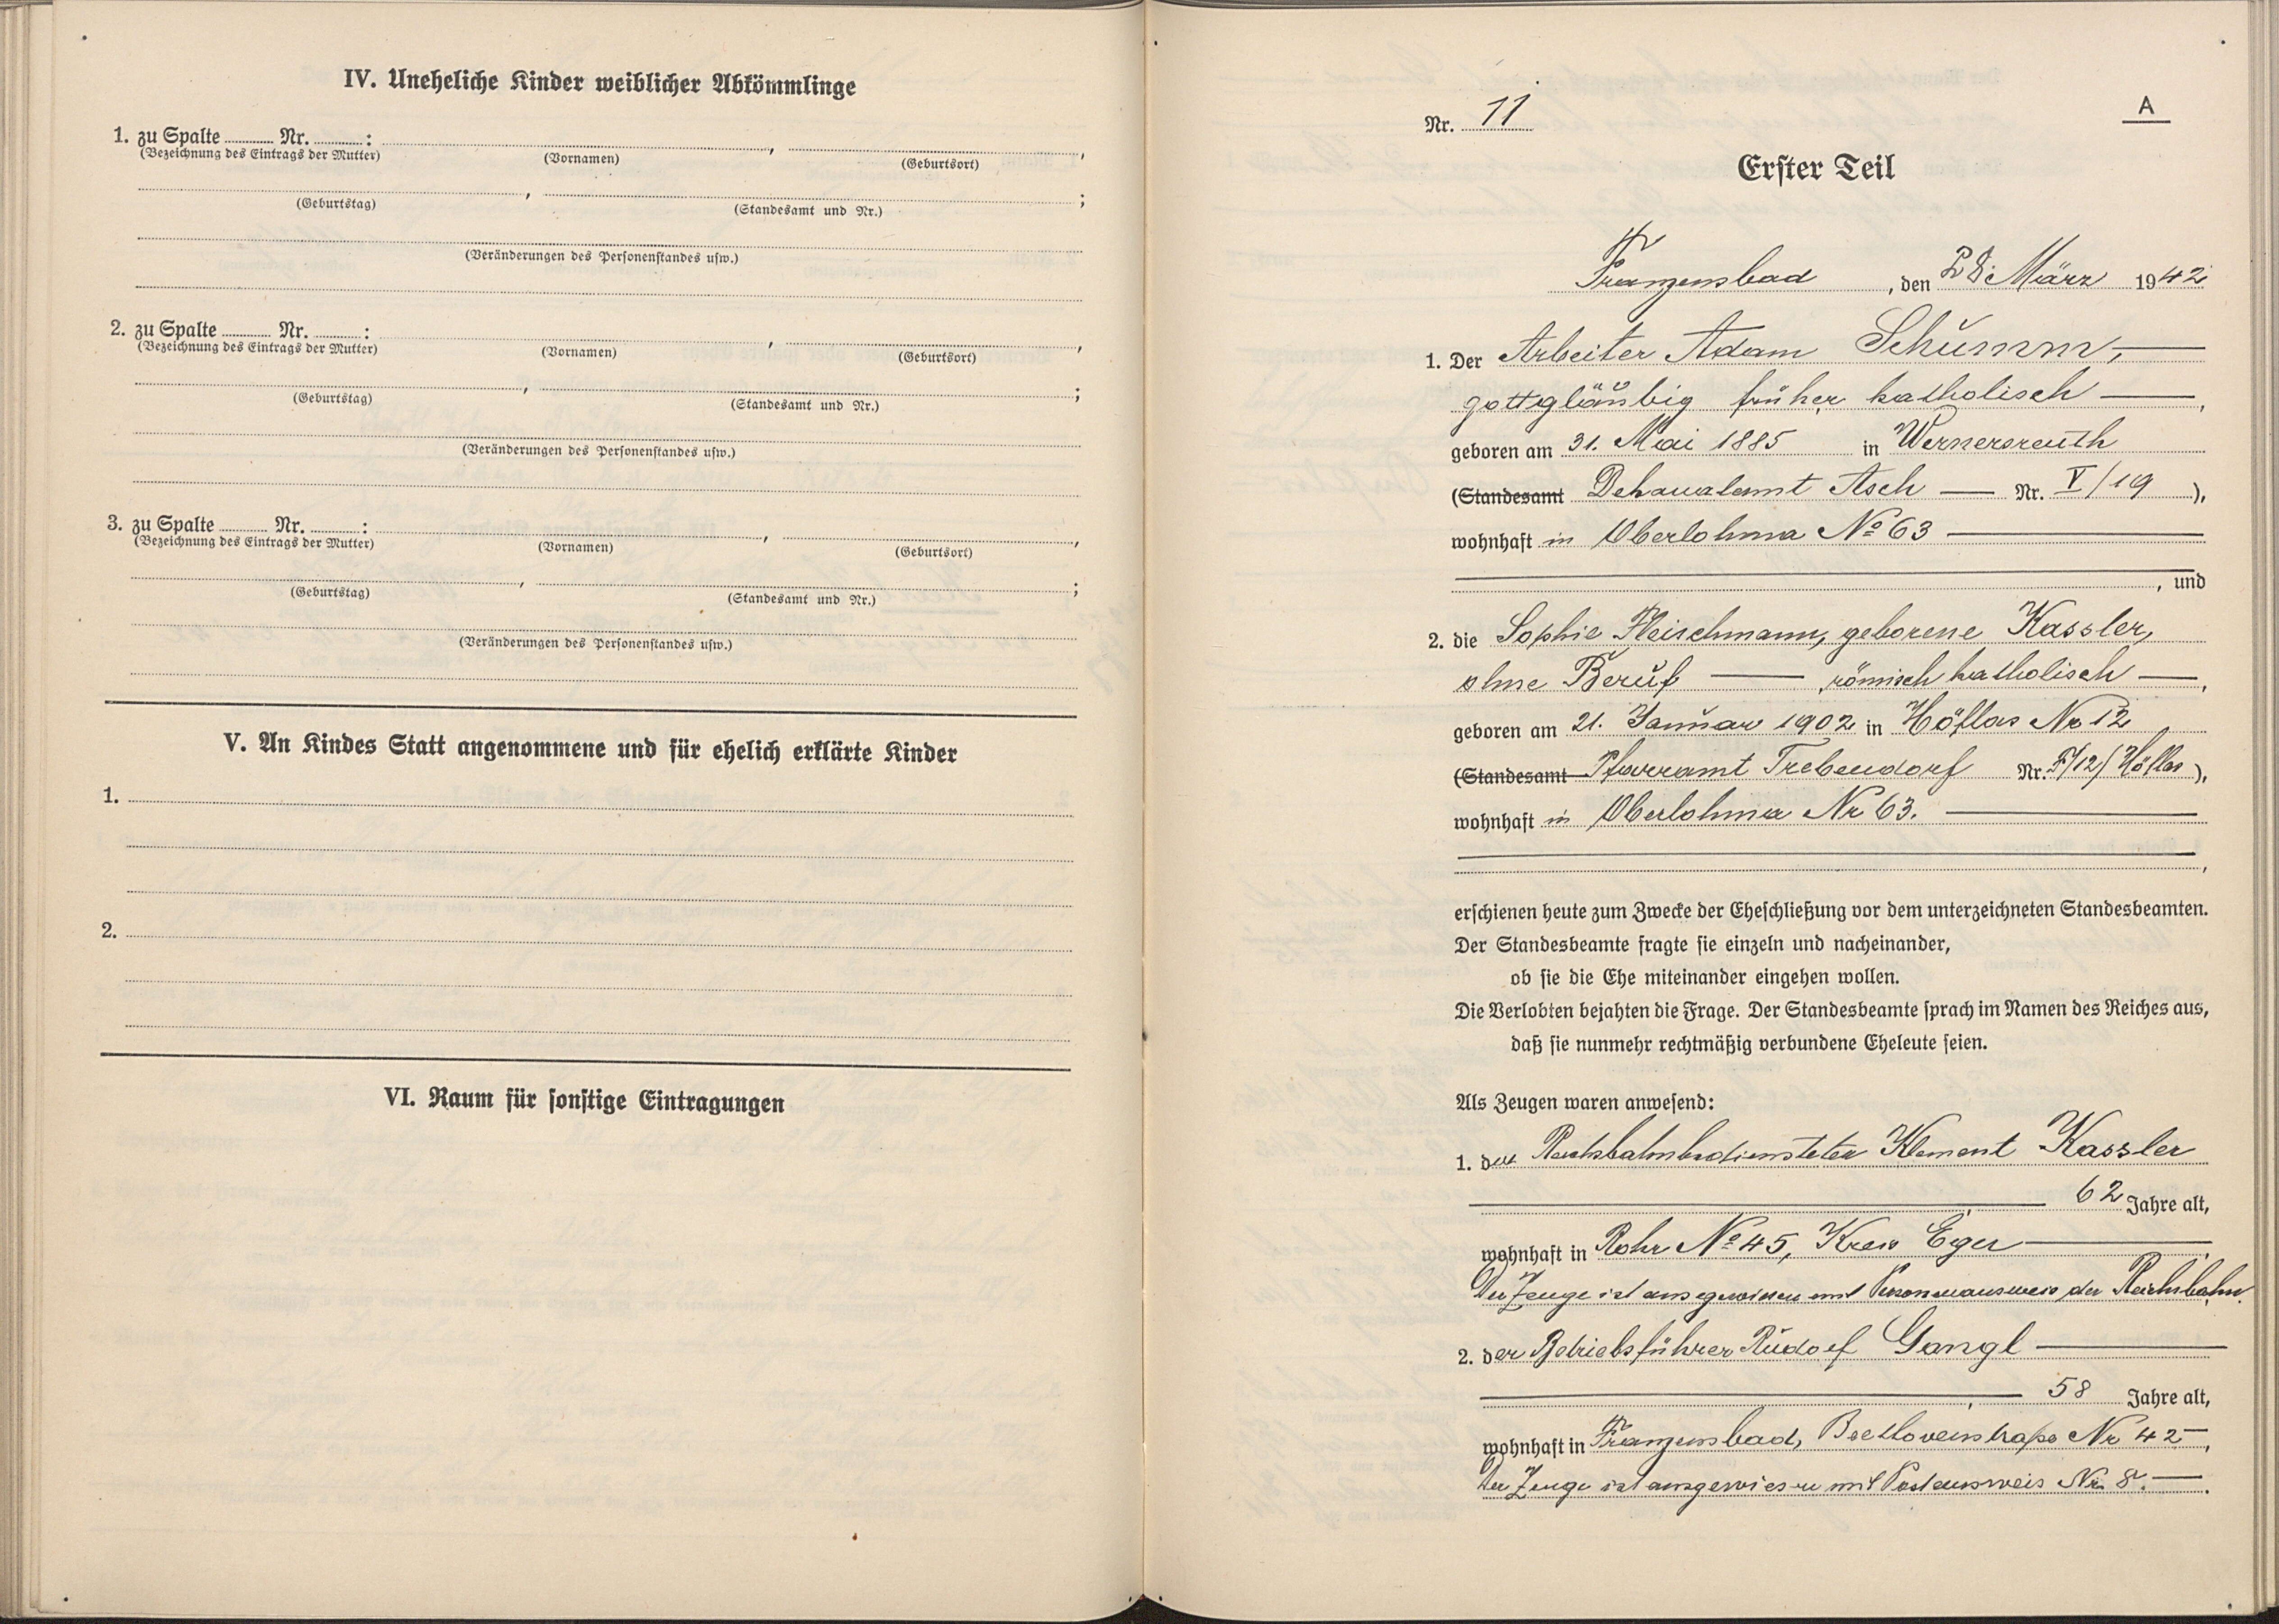 IV. Uneheliche Kinder weiblicher Abkömmlinge
1. zu Spalte Nr. : , ,
(Bezeichnung des Eintrags der Mutter) (Vornamen) (Geburtsort)
, ;
(Geburtstag) (Standesamt und Nr.)
(Veränderungen des Personenstandes usw.)
2. zu Spalte Nr. : , ,
(Bezeichnung des Eintrags der Mutter) (Vornamen) (Geburtsort)
, ;
(Geburtstag) (Standesamt und Nr.)
(Veränderungen des Personenstandes usw.)
3. zu Spalte Nr. : , ,
(Bezeichnung des Eintrags der Mutter) (Vornamen) (Geburtsort)
, ;
(Geburtstag) (Standesamt und Nr.)
(Veränderungen des Personenstandes usw.)
V. An Kindes Statt angenommene und für ehelich erklärte Kinder
1.
2.
VI. Raum für sonstige Eintragungen
A
Nr. 11
Erster Teil
Franzensbad, den 28. März 1942
1. Der Arbeiter Adam Schumm,
gottgläubig früher katholisch,
geboren am 31. Mai 1885 in Wernersreuth
(Standesamt Dekanalamt Asch Nr. V/19),
wohnhaft in Oberlohma No 63
, und
2. die Sophie Fleischmann, geborene Kassler,
ohne Beruf, römisch katholisch,
geboren am 21. Januar 1902 in Höflas No 12
(Standesamt Pfarramt Trebendorf Nr. /12/ Höflas),
wohnhaft in Oberlohma Nr 63.
,
erschienen heute zum Zwecke der Eheschließung vor dem unterzeichneten Standesbeamten.
Der Standesbeamte fragte sie einzeln und nacheinander,
ob sie die Ehe miteinander eingehen wollen.
Die Verlobten bejahten die Frage. Der Standesbeamte sprach im Namen des Reiches aus,
daß sie nunmehr rechtmäßig verbundene Eheleute seien.
Als Zeugen waren anwesend:
1. der Reichsbahnbedienstete Klement Kassler
62 Jahre alt,
wohnhaft in Rohr No 45, Kreis Eger
Der Zeuge ist ausgewiesen mit Personenausweis der Reichsbahn.
2. der Betriebsführer Rudolf Gangl
, 58 Jahre alt,
wohnhaft in Franzensbad, Beethovenstraße Nr 42,
Der Zeuge ist ausgewiesen mit Postausweis Nr. 8.